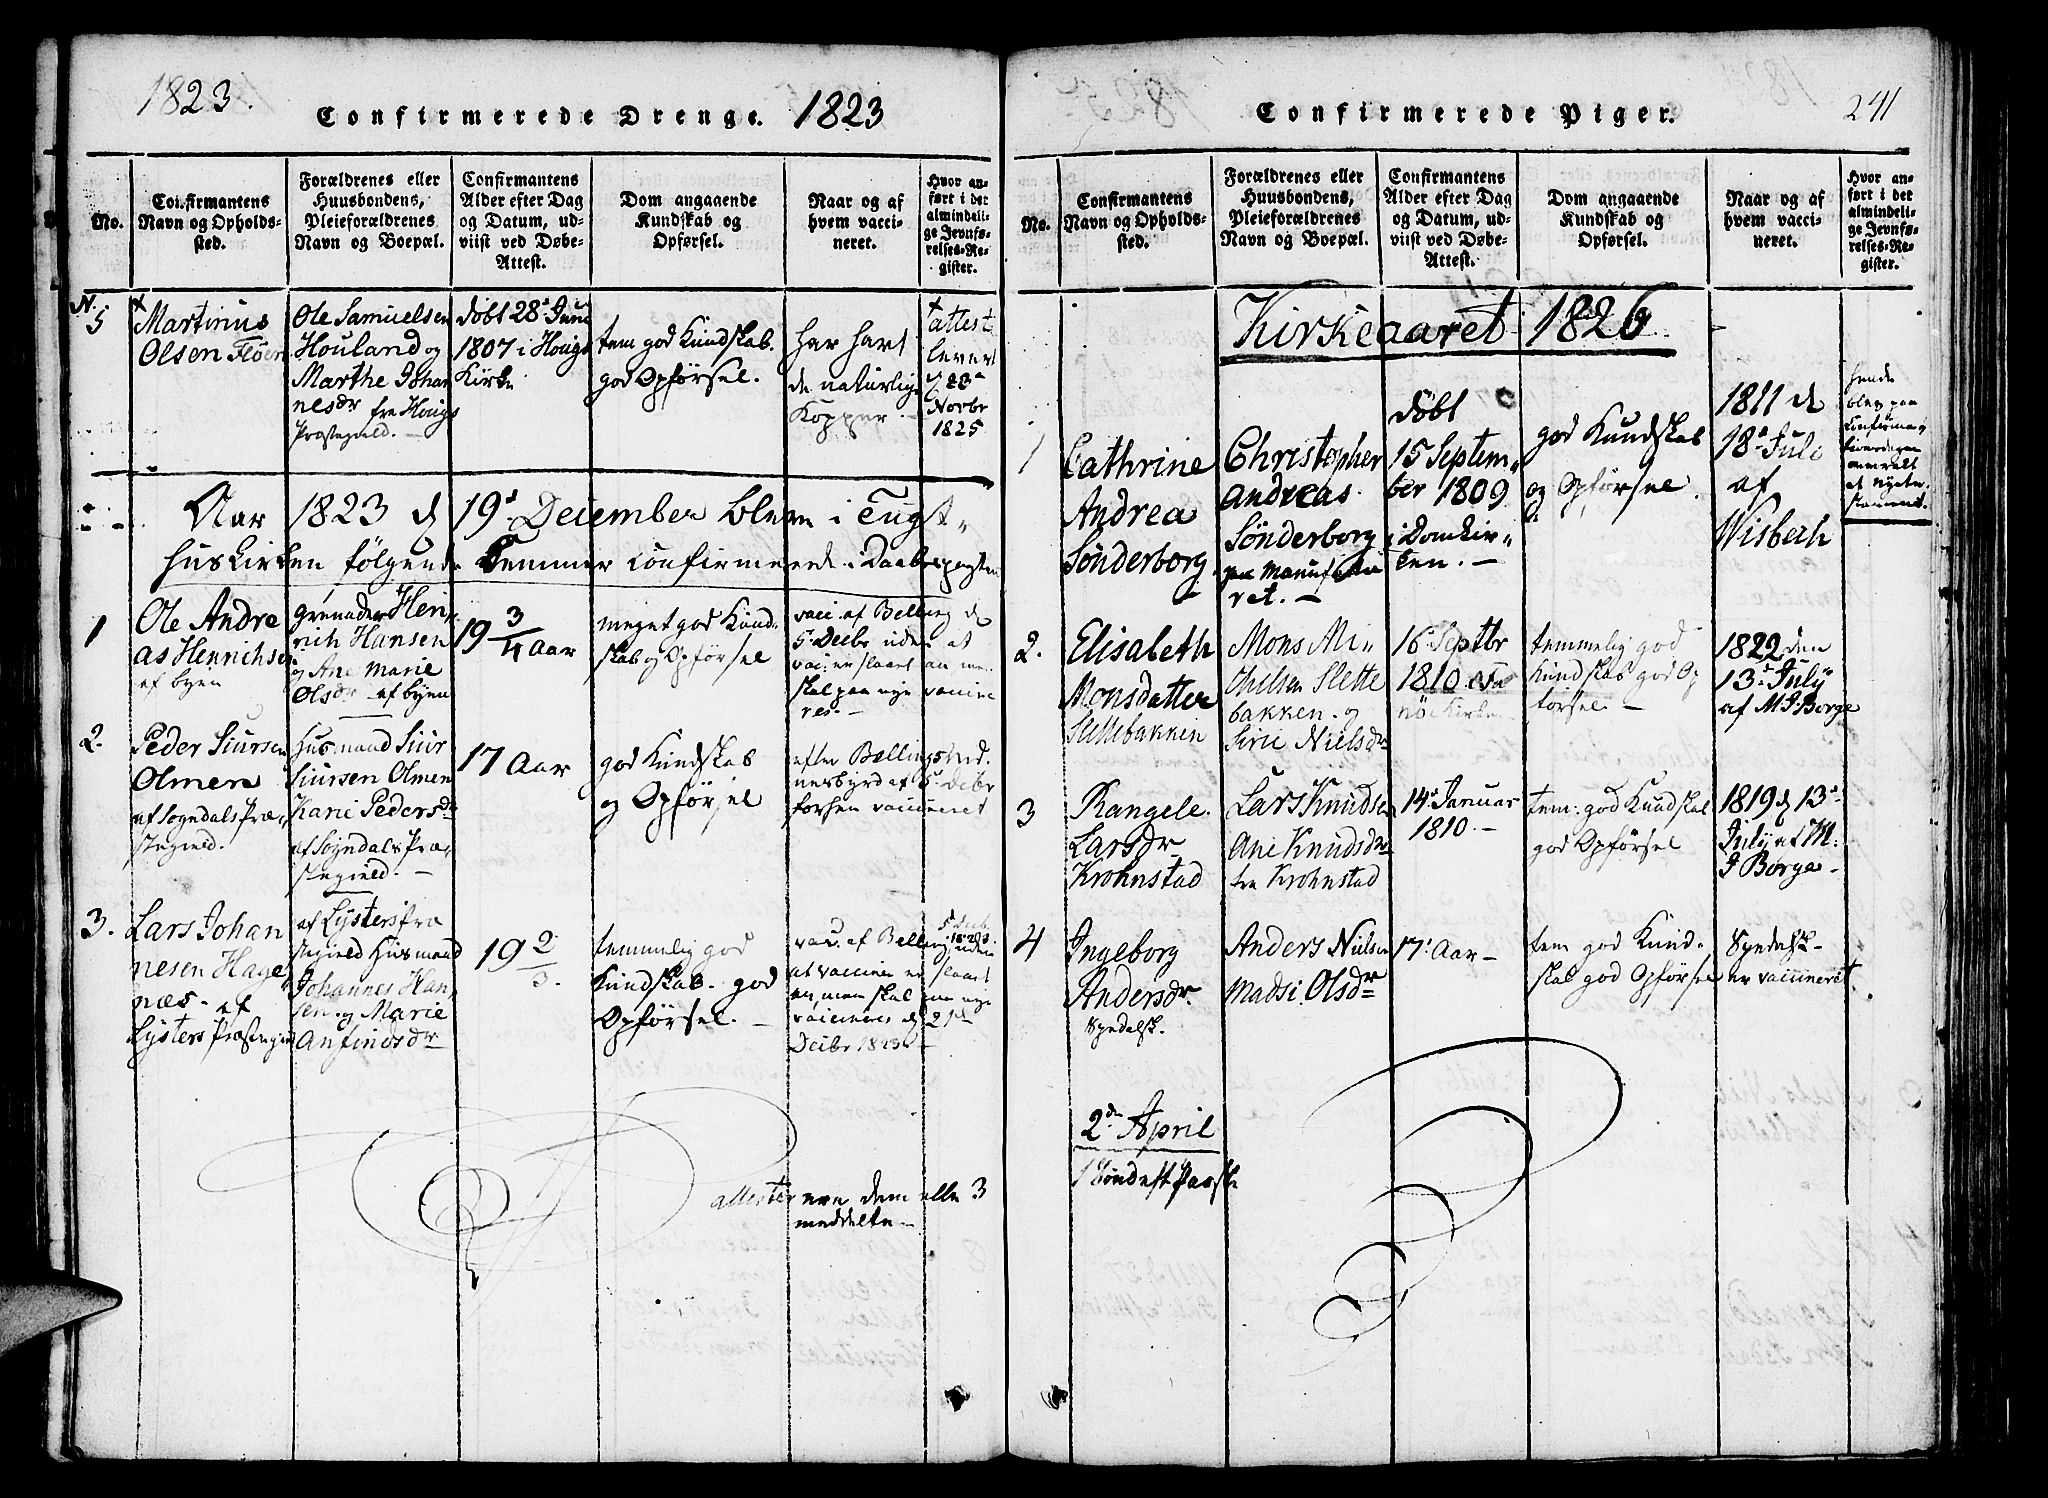 1823.
Confirmerede Drenge. 1823
No.
Confirmantens
Navn og Opholds-
sted.
Forældrenes eller
Huusbondens,
Pleieforældrenes
Navn og Boepæl.
Confirmantens
Alder efter Dag
og Datum, ud-
viist ved Døbe-
Attest.
Dom angaaende
Kundskab og
Opførsel.
Naar og af
hvem vacci-
neret.
Hvor an-
ført i det
almindeli-
ge Jevnfø-
relses-Re-
gister.
N.
5
Martinus
Olsen Fløen
Ole Samuelsen
Houland og
Marthe Johan
nesdr fra Hougs
Præstegield.
døbt 28d Juni
1807 i Hougs
Kirke
tem god Kundskab.
god Opførsel.
har havt
de naturlige
Kopper.
attest
levert
d 28d
Novbr
1825
Aar 1823 d 19d December bleve i Tugt-
huskirken følgende Lemmer confirmerede i Daabspagten
1
Ole Andre
as Henrichsen
af byen
grenader Hen-
rich Hansen
og Ane Marie
Olsdr af byen
19 3/4 Aar
meget god Kund-
skab og Opførsel
vacc. af Belling d
5 Decbr uden at
vaccinen slaaet an men
skal paa nye vaccine
res.
2.
Peder Siursen
Olmen
af Sogndals Præ-
stegield.
Husmand Siur
Siursen Olmen
Karie Pedersdr
af Sogndals Præ-
stegield.
17 Aar
god Kundskab
og Opførsel
efter Bellings vid-
nesbyrd af 5 Debr
forhen vaccineret
3.
Lars Johan
nesen Hage
næs. af
Lysters Præstegield
af Lysters Præ
stegield Husmand
Johannes Han-
sen og Marie
Anfindsdr
19 2/3.
temmelig god
Kundskab. god
Opførsel.
vacc. af Belling 5 Decbr
1823 uden
at vaccinen er slaaet
an, men skal paa nye
vaccineres d 21de
Decbr 1823
attester ere dem alle 3
meddelte
Confirmerede Piger.
241
No.
Confirmantens
Navn og Opholds-
sted.
Forældrenes eller
Huusbondens,
Pleieforældrenes
Navn og Boepæl.
Confirmantens
Alder efter Dag
og Datum, ud-
viist ved Døbe-
Attest.
Dom angaaende
Kundskab og
Opførsel.
Naar og af
hvem vacci-
neret.
Hvor an-
ført i det
almindeli-
ge Jevnfø-
relses-Re-
gister.
Kirkeaaret 1826
1
Cathrine
Andrea
Sønderborg
Christopher
Andreas
Sønderborg
døbt
15 Septem-
ber 1809
i Domkir-
ken.
god Kundskab
og Opførsel.
1811 d
18d Juli
af
Wisbech
2.
Elisabeth
Monsdatter
Slettebakken
Mons Mi-
chelsen Slette
bakken. og
Siri Nielsdr
16 Septbr
1810
temmelig god
Kundskab god Op
førsel.
1822 den
13d July
af M J Borge
3
Rangele
Larsdr
Krohnstad
Lars Knudsen
Ane Knudsdr
fra Krohnstad
14d Januar
1810.
tem: god Kundskab
god Opførsel
1819 d 13d
July af M.
J Borge
4
Ingeborg
Andersdr.
Spedalsk.
Anders Nielsen
Madsi Olsdr
17 Aar
tem god Kund-
skab god Opførsel
Spedalsk
er vaccineret
2den April
1 Sønd eft Paaske